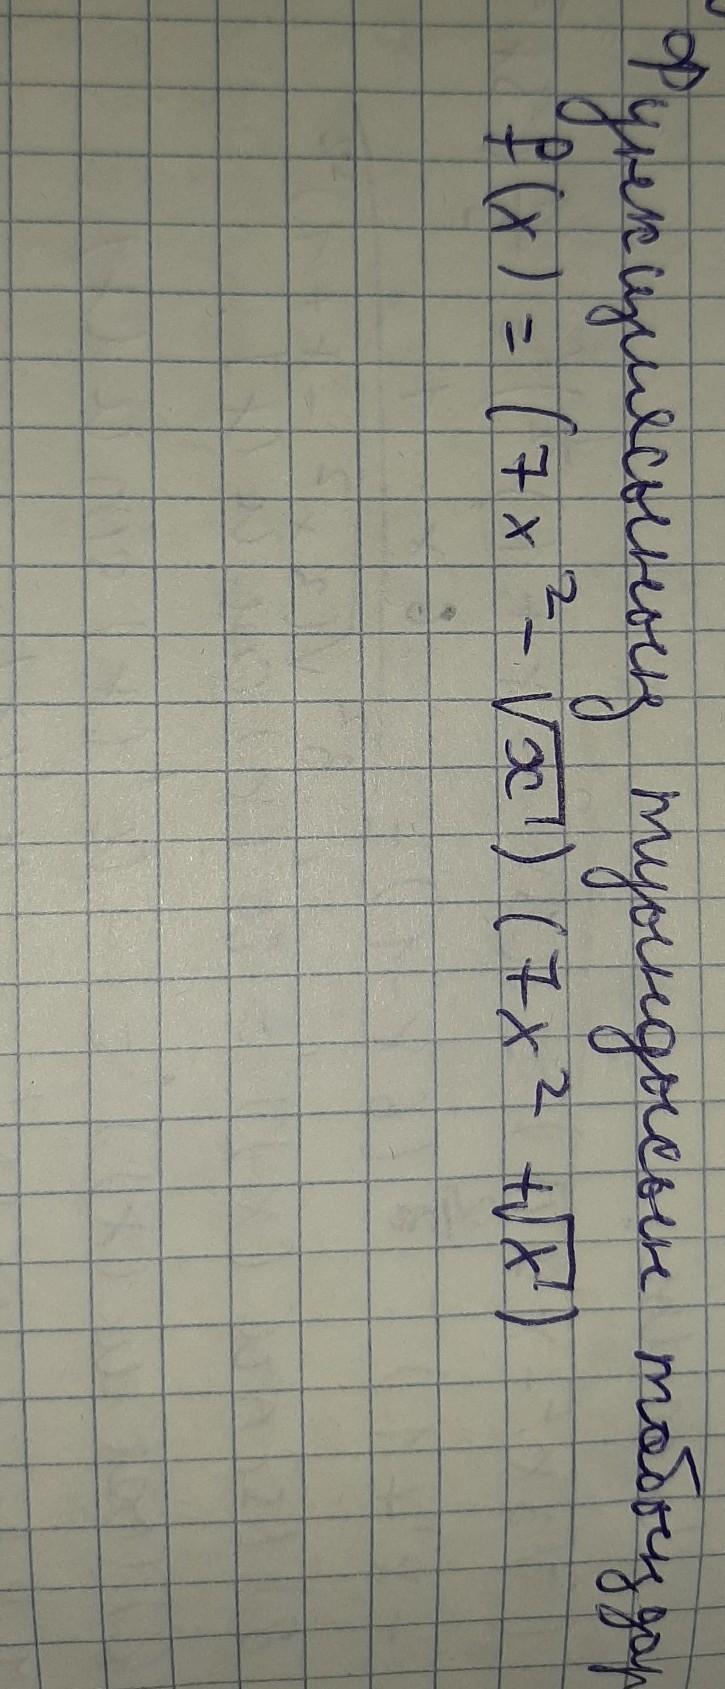 Функциясының туындысын табыңдар
f(x) = (7x² - √x) (7x² + √x)